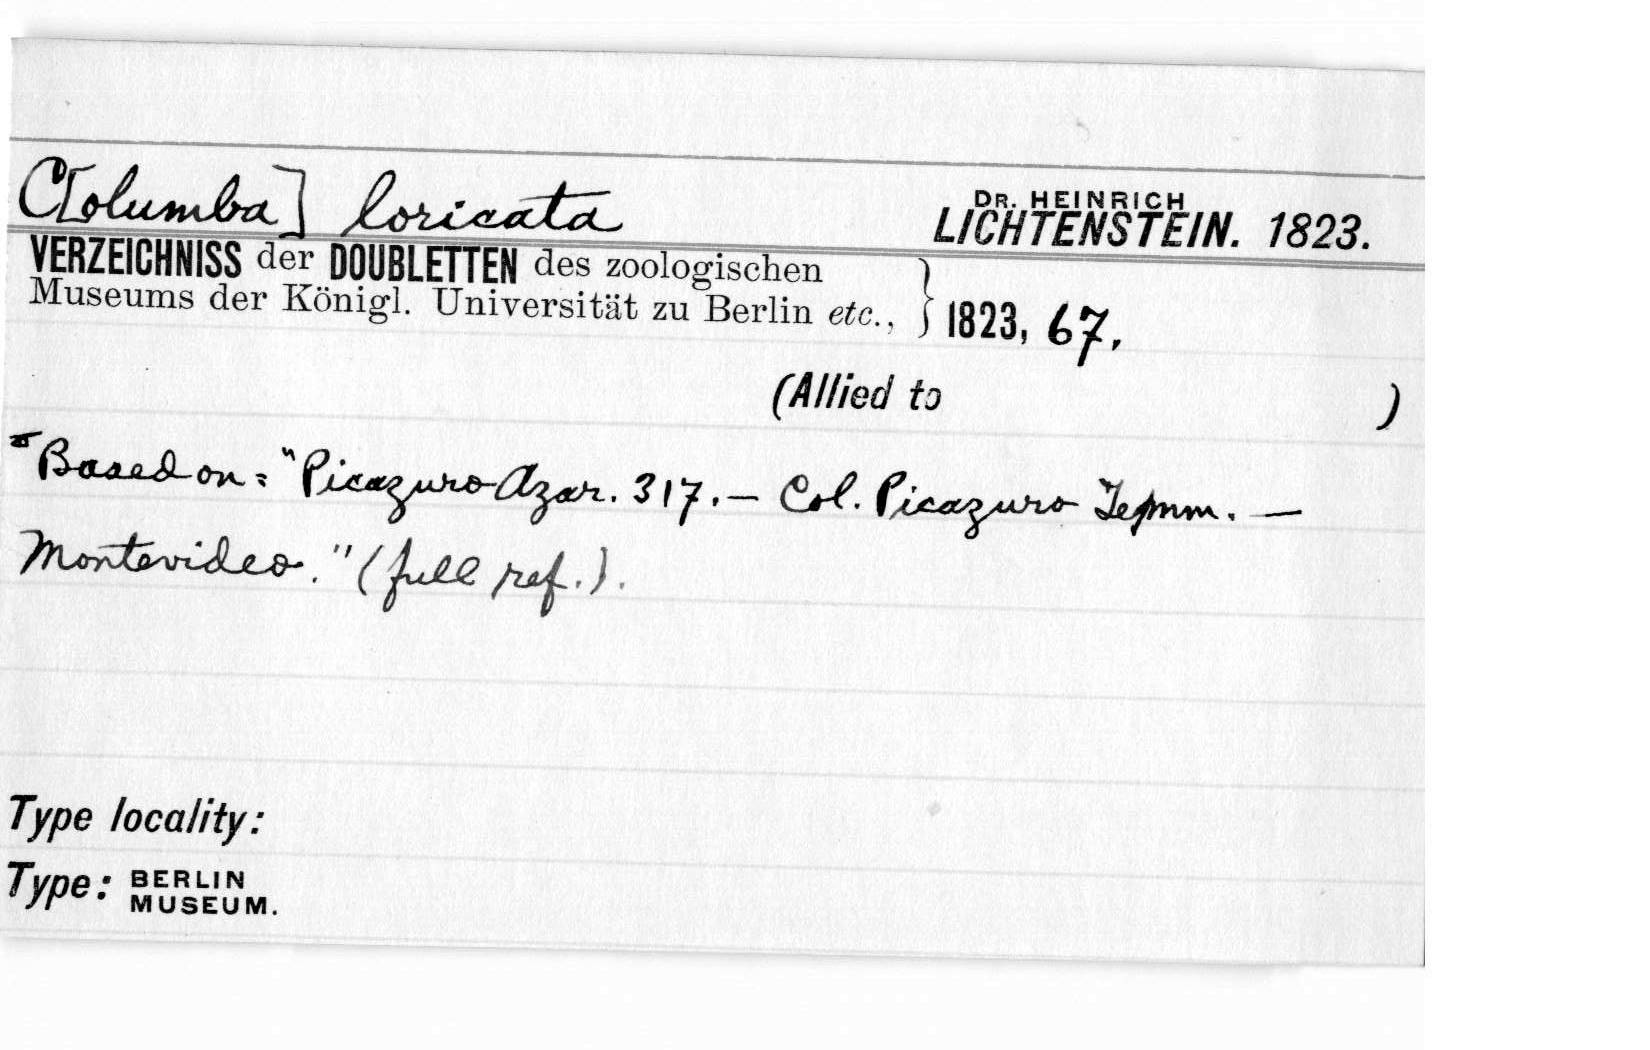 C[olumba] loricata
DR. HEINRICH
LICHTENSTEIN. 1823.
VERZEICHNISS der DOUBLETTEN des zoologischen
Museums der Königl. Universität zu Berlin etc., } 1823, 67.
(Allied to )
Based on: "Picazuro Azar. 317. — Col. Picazuro Temm. —
Montevideo." (full ref.).
Type locality:
Type: BERLIN
MUSEUM.